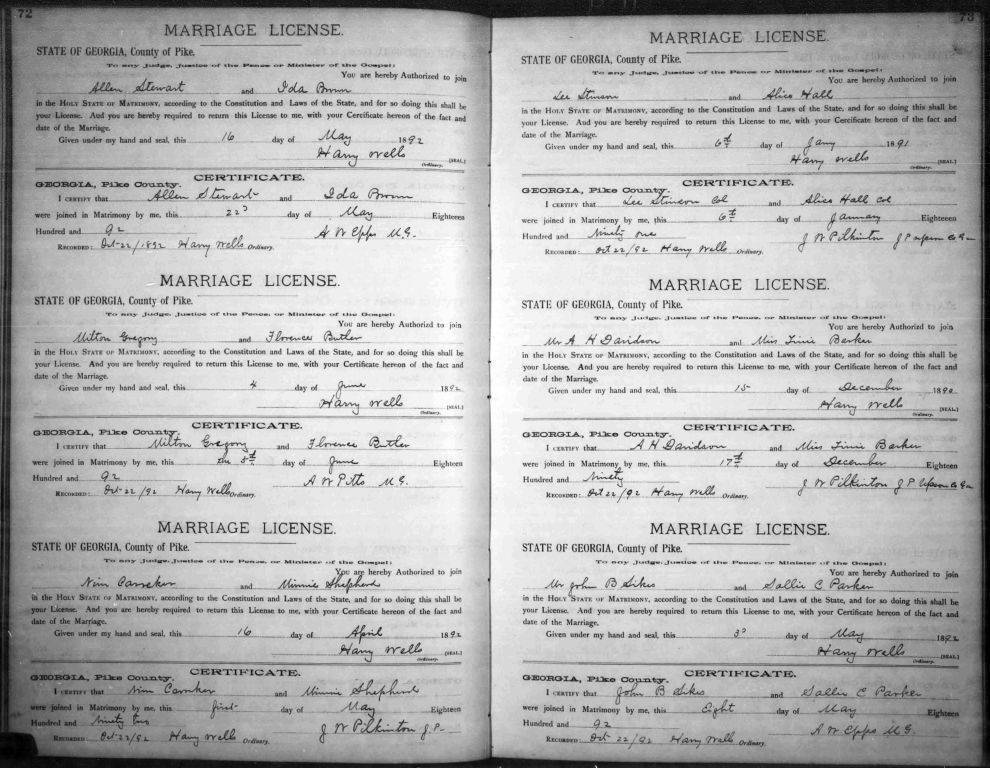 72
MARRIAGE LICENSE.
STATE OF GEORGIA, County of Pike.
To any Judge, Justice of the Peace, or Minister of the Gospel:
You are hereby Authorized to join
Allen Stewart and Ida Brown
in the HOLY STATE OF MATRIMONY, according to the Constitution and Laws of the State, and for so doing this shall be
your License. And you are hereby required to return this License to me, with your Certificate hereon of the fact and
date of the Marriage.
Given under my hand and seal, this 16 day of May 1892
Harry Wells [SEAL.]
Ordinary.
CERTIFICATE.
GEORGIA, Pike County.
I CERTIFY that Allen Stewart and Ida Brown
were joined in Matrimony by me, this 22d day of May Eighteen
Hundred and 92 A W Epps M.G.
RECORDED: Oct 22/1892 Harry Wells Ordinary.
MARRIAGE LICENSE.
STATE OF GEORGIA, County of Pike.
To any Judge, Justice of the Peace, or Minister of the Gospel:
You are hereby Authorized to join
Milton Gregory and Florence Butler
in the HOLY STATE OF MATRIMONY, according to the Constitution and Laws of the State, and for so doing this shall be
your License. And you are hereby required to return this License to me, with your Certificate hereon of the fact and
date of the Marriage.
Given under my hand and seal, this 4 day of June 1892
Harry Wells [SEAL.]
Ordinary.
CERTIFICATE.
GEORGIA, Pike County.
I CERTIFY that Milton Gregory and Florence Butler
were joined in Matrimony by me, this the 5th day of June Eighteen
Hundred and 92 A W Pitts M.G.
RECORDED: Oct 22/92 Harry Wells Ordinary.
MARRIAGE LICENSE.
STATE OF GEORGIA, County of Pike.
To any Judge, Justice of the Peace, or Minister of the Gospel:
You are hereby Authorized to join
Nim and Minnie Shepherd
in the HOLY STATE OF MATRIMONY, according to the Constitution and Laws of the State, and for so doing this shall be
your License. And you are hereby required to return this License to me, with your Certificate hereon of the fact and
date of the Marriage.
Given under my hand and seal, this 16 day of April 1892
Harry Wells [SEAL.]
Ordinary.
CERTIFICATE.
GEORGIA, Pike County.
I CERTIFY that Nim and Minnie Shepherd
were joined in Matrimony by me, this first day of May Eighteen
Hundred and Ninety two J W Pilkinton J.P.
RECORDED: Oct 22/92 Harry Wells Ordinary.
73
MARRIAGE LICENSE.
STATE OF GEORGIA, County of Pike.
To any Judge, Justice of the Peace or Minister of the Gospel:
You are hereby Authorized to join
Lee Stinson and Alice Hall
in the HOLY STATE OF MATRIMONY, according to the Constitution and Laws of the State, and for so doing this shall be
your License. And you are hereby required to return this License to me, with your Cercificate hereon of the fact and
date of the Marriage.
Given under my hand and seal, this 6th day of Jany 1891
Harry Wells [SEAL]
Ordinary.
CERTIFICATE.
GEORGIA, Pike County.
I CERTIFY that Lee Stinson Col and Alice Hall col
were joined in Matrimony by me, this 6th day of January Eighteeen
Hundred and Ninety one J W Pilkinton J P Upson Co Ga
RECORDED: Oct 22/92 Harry Wells Ordinary.
MARRIAGE LICENSE.
STATE OF GEORGIA, County of Pike.
To any Judge, Justice of the Peace, or Minister of the Gospel:
You are hereby Authorized to join
Mr A H Davidson and Miss Barker
in the HOLY STATE OF MATRIMONY, according to the Constitution and Laws of the State, and for so doing this shall be
your License. And you are hereby required to return this License to me, with your Certificate hereon of the fact and
date of the Marriage.
Given under my hand and seal, this 15 day of December 1890
Harry Wells [SEAL.]
Ordinary.
CERTIFICATE.
GEORGIA, Pike County.
I CERTIFY that A H Davidson and Miss Barker
were joined in Matrimony by me, this 17th day of December Eighteen
Hundred and Ninety J W Pilkinton J P Upson Co Ga
RECORDED: Oct 22/92 Harry Wells Ordinary.
MARRIAGE LICENSE.
STATE OF GEORGIA, County of Pike.
To any Judge, Justice of the Peace, or Minister of the Gospel:
You are hereby Authorized to join
Mr John B Sikes and Sallie C Parker
in the HOLY STATE OF MATRIMONY, according to the Constitution and Laws of the State, and for so doing this shall be
your License. And you are hereby required to return this License to me, with your Certificate hereon of the fact and
date of the Marriage.
Given under my hand and seal, this 3d day of May 1892
Harry Wells [SEAL.]
Ordinary.
CERTIFICATE.
GEORGIA, Pike County.
I CERTIFY that John B Sikes and Sallie C Parker
were joined in Matrimony by me, this Eight day of May Eighteen
Hundred and 92 A W Epps M.G.
RECORDED: Oct 22/92 Harry Wells Ordinary.